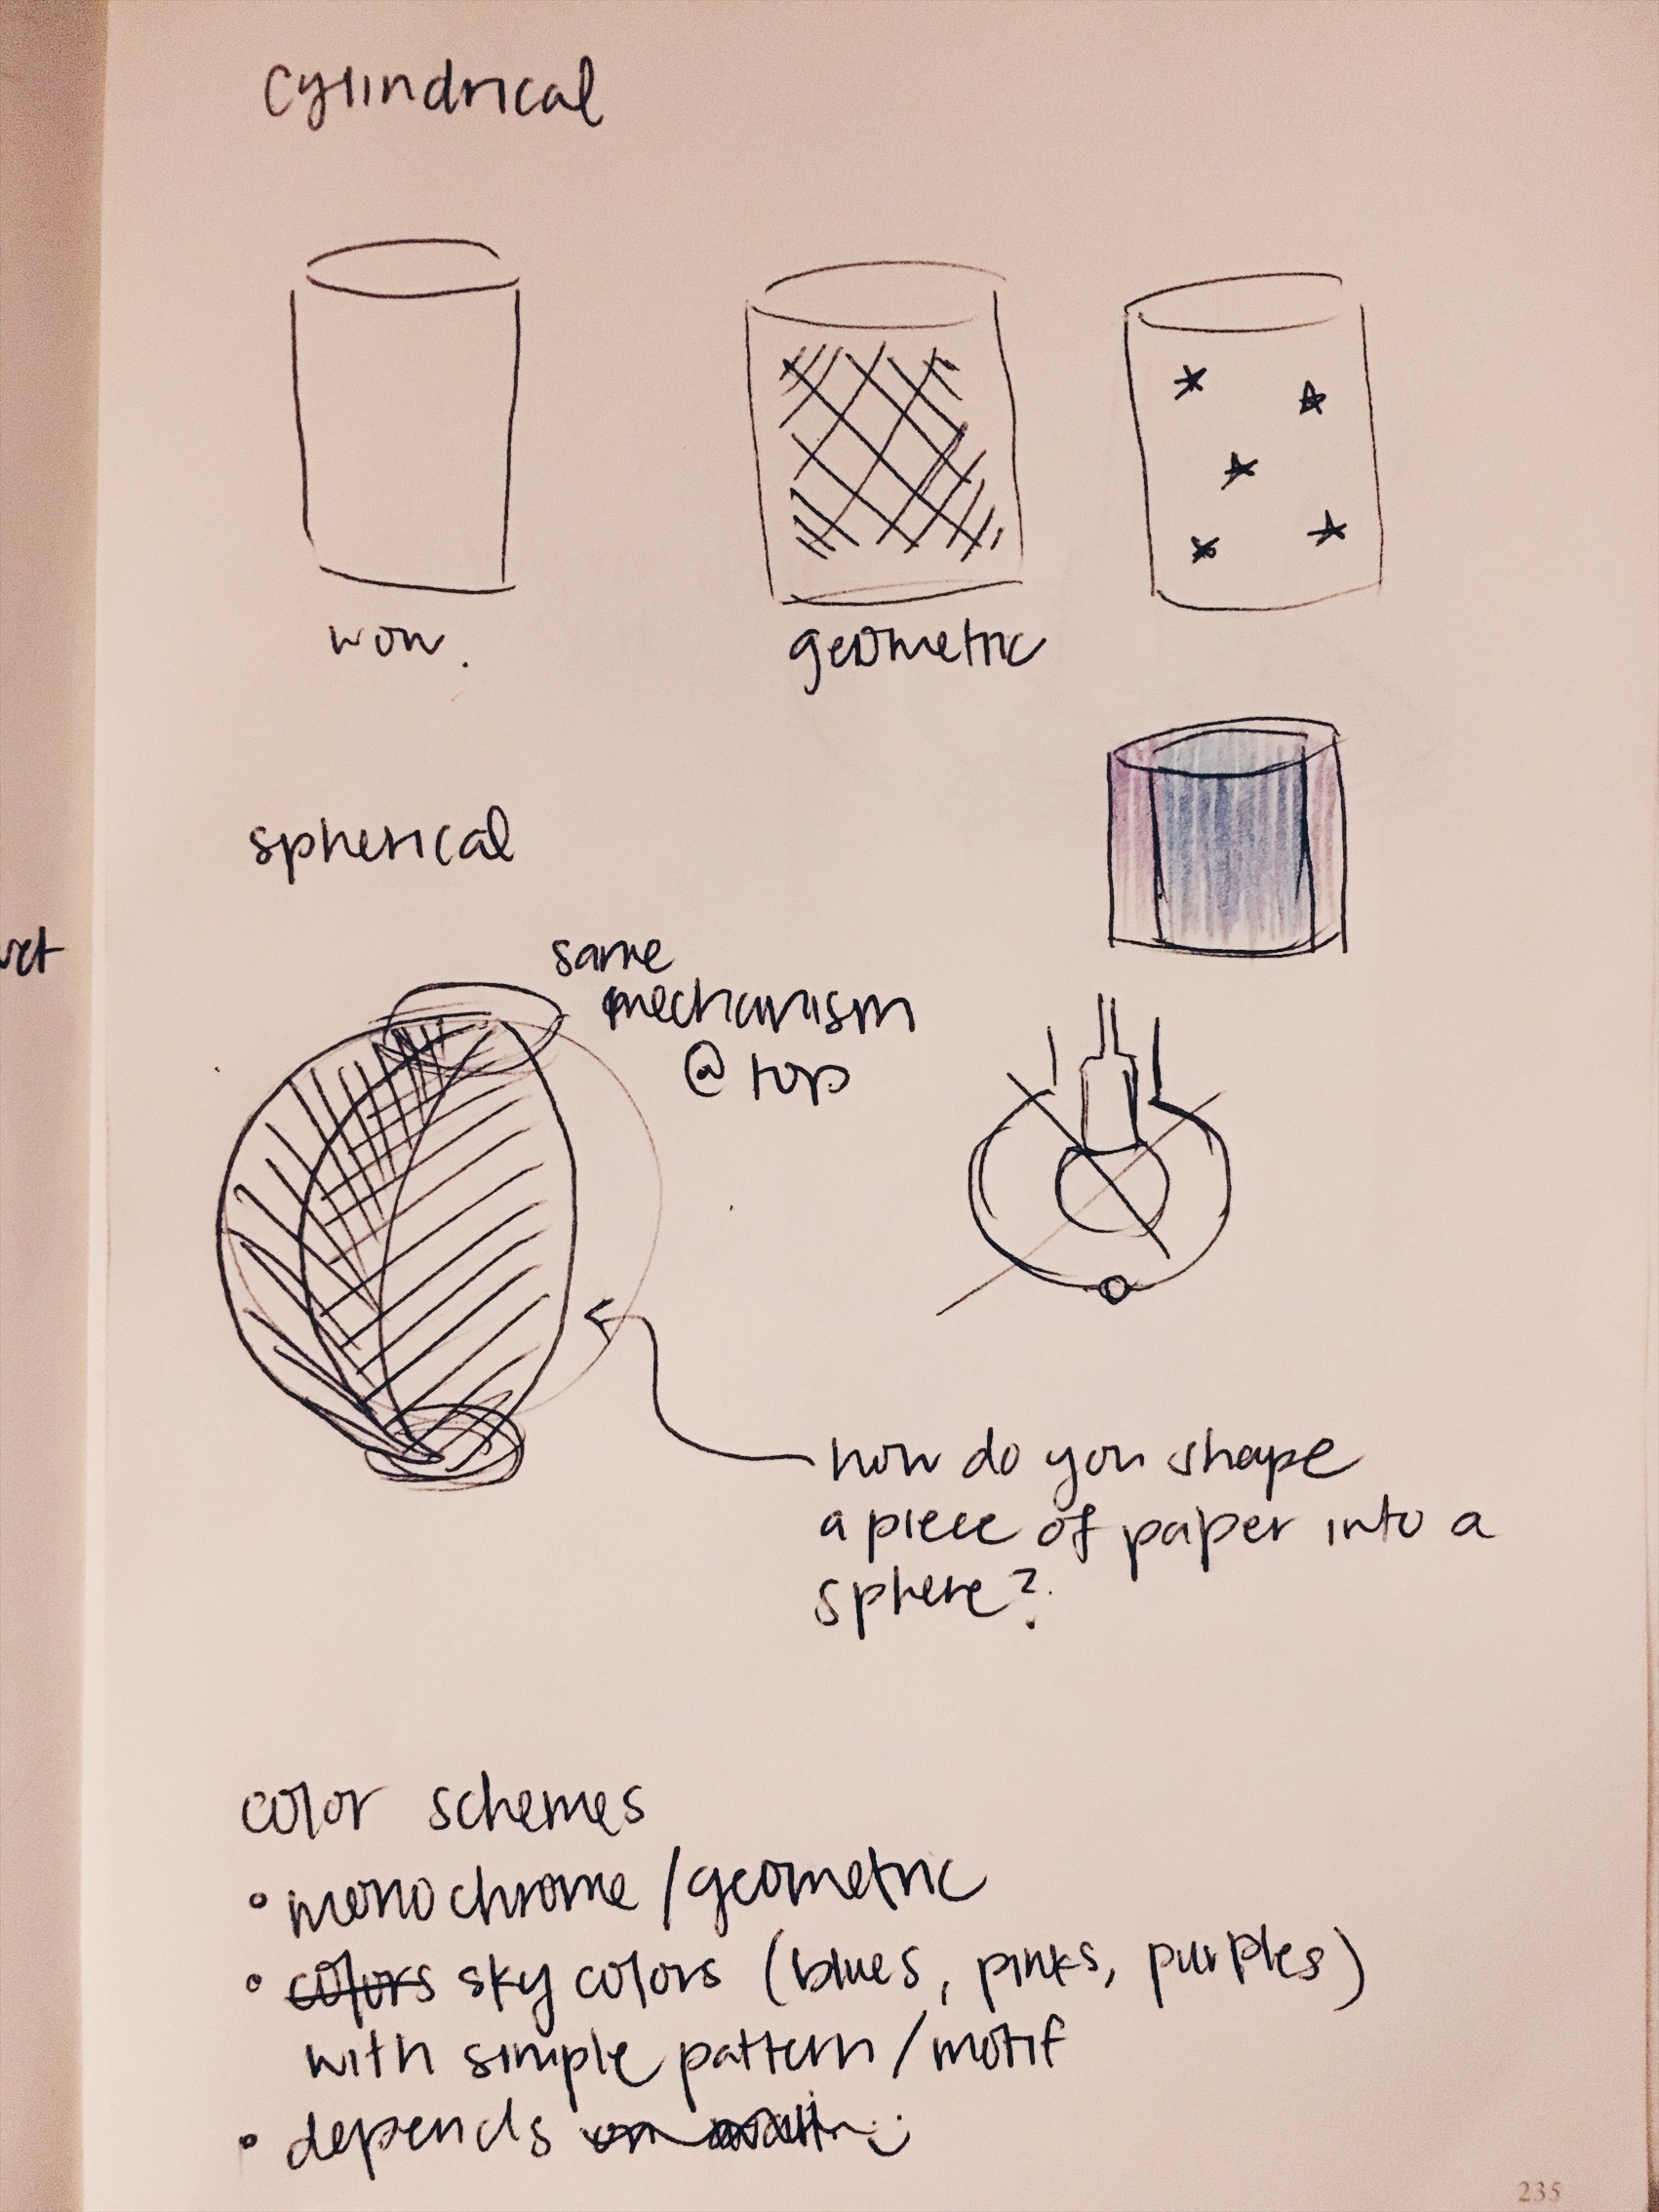 cylindrical
wow.
geometric
spherical
same
mechanism
@ top
how do you shape
a piece of paper into a
sphere?
color schemes
• monochrome/geometric
• colors sky colors (blues, pinks, purples)
with simple pattern/motif
• depends on
235